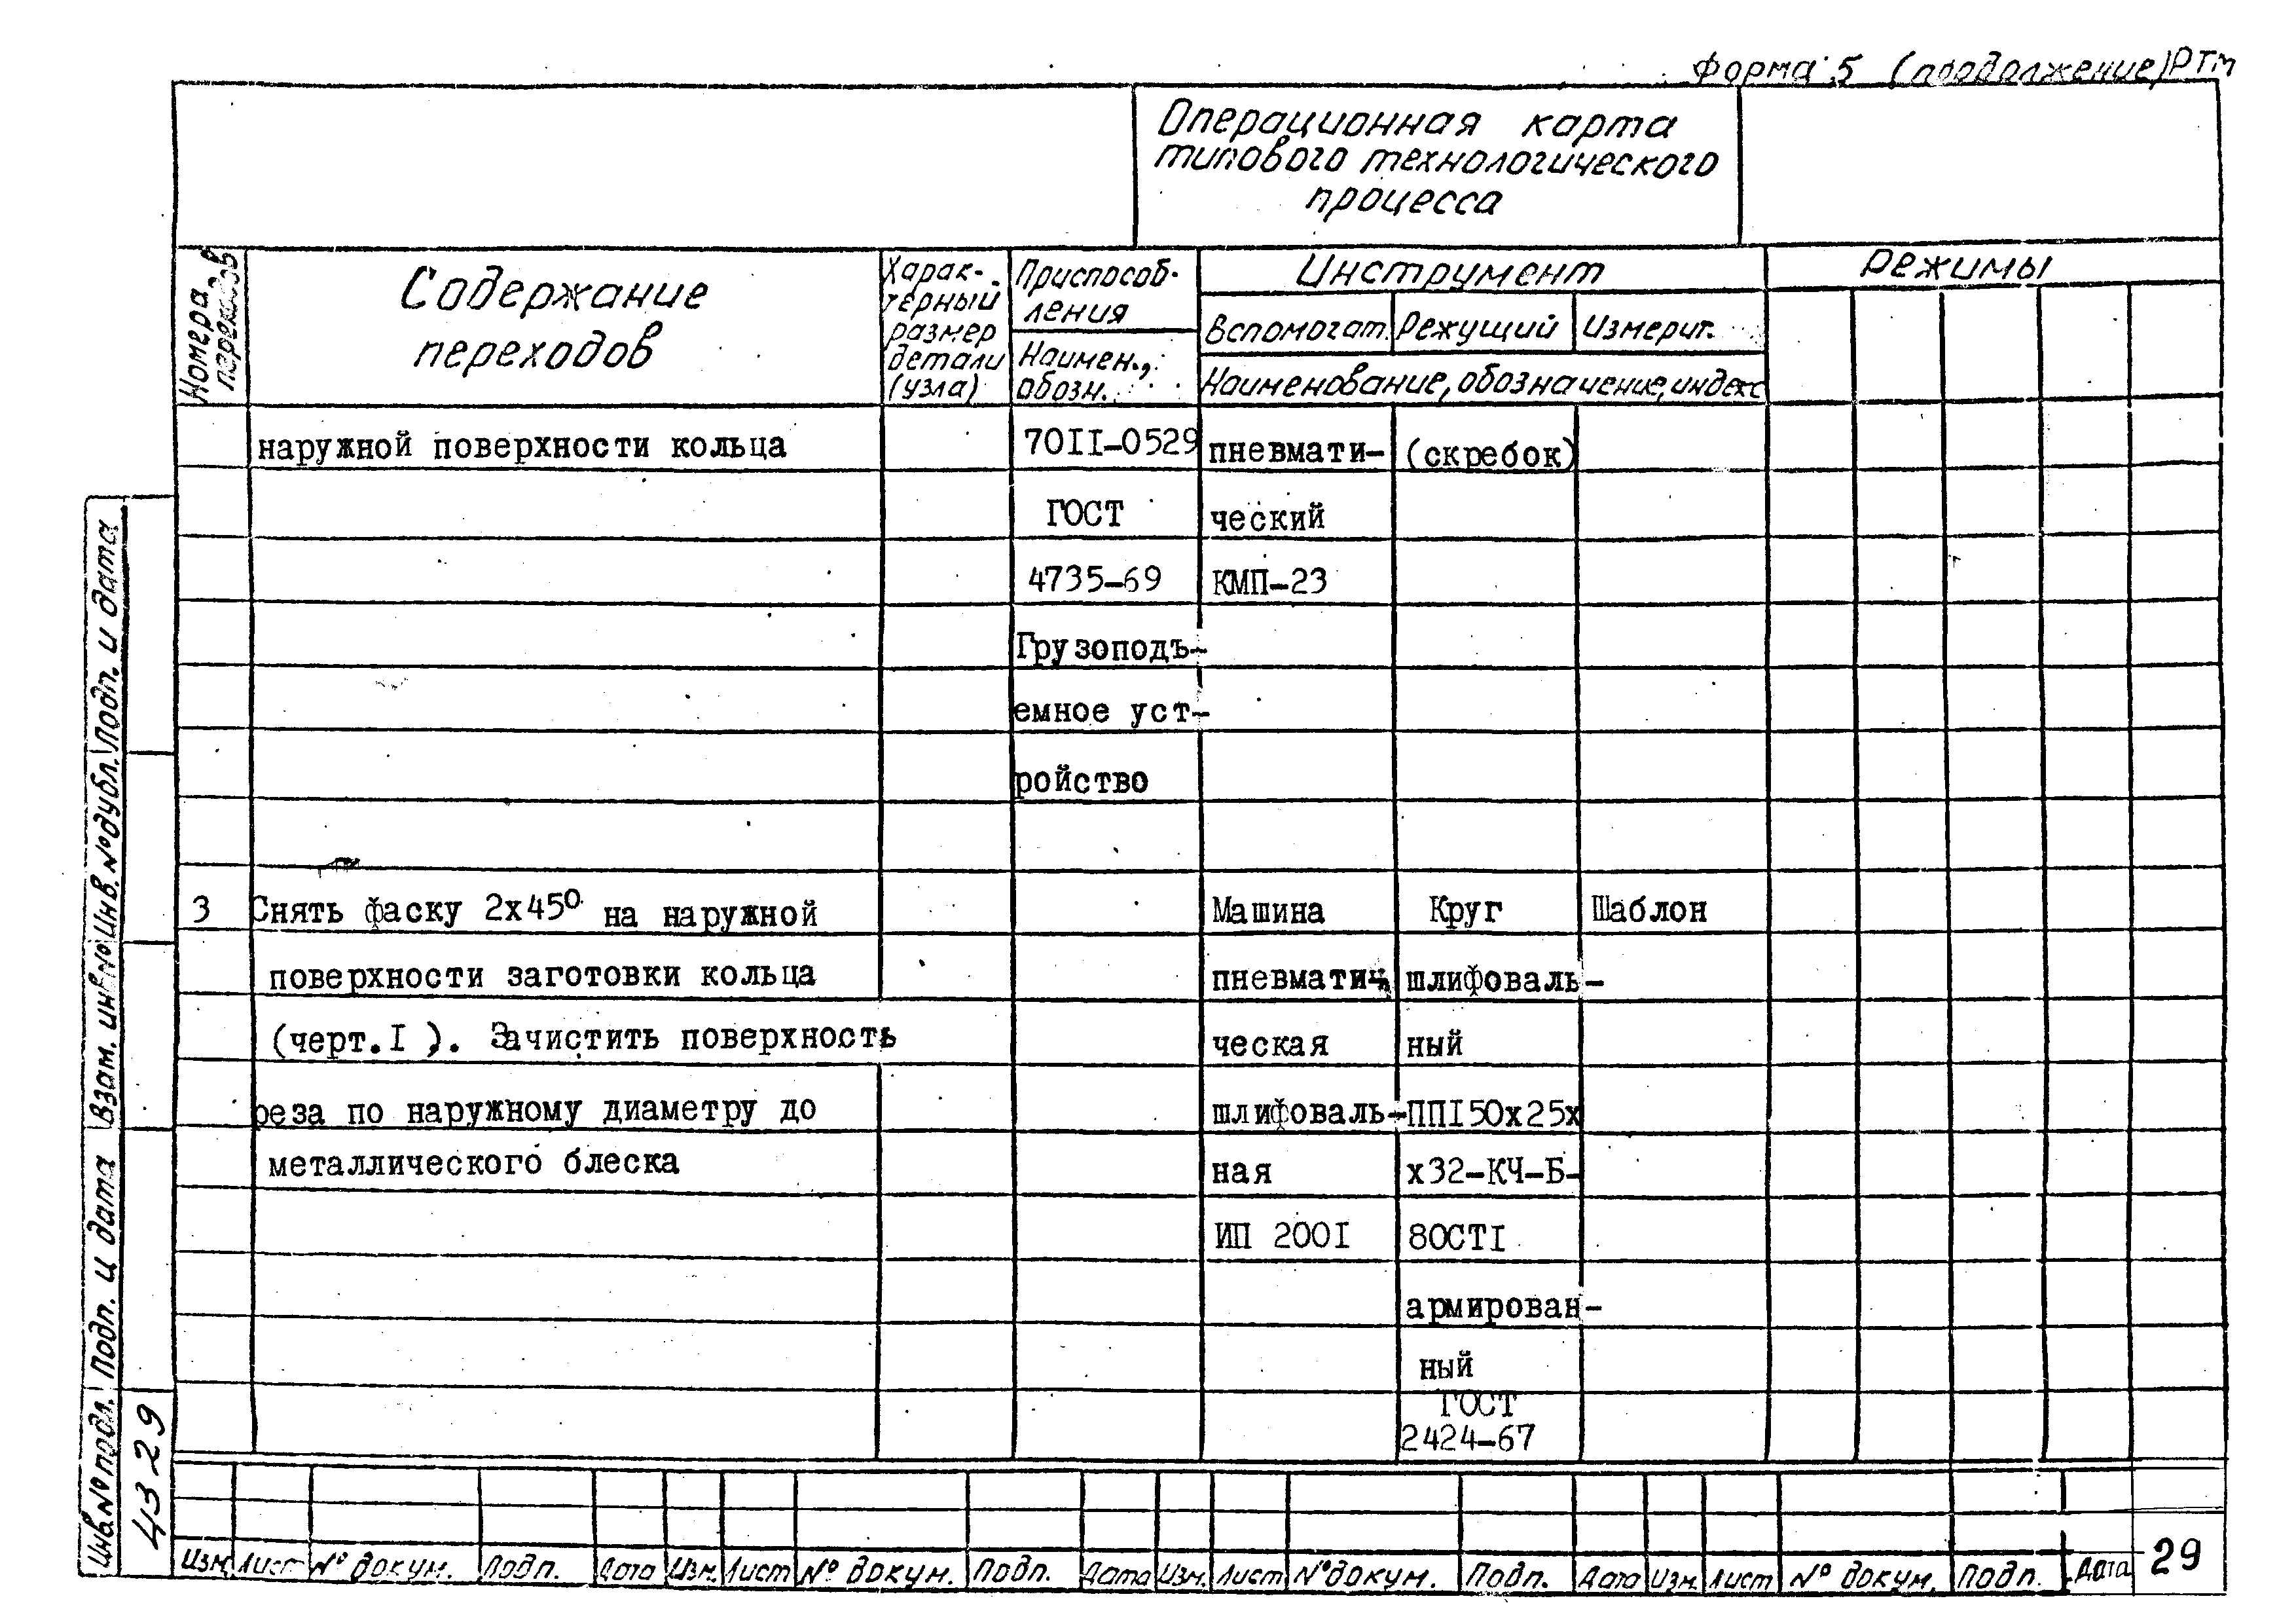 Форма 5 (продолжение) РТМ
Операционная карта
типового технологического
процесса
Номера
переходов
Содержание
переходов
Харак-
терный
размер
детали
(узла)
Приспособ-
ления
Наимен.,
обозн.
Инструмент
Вспомогат. Режущий Измерит.
Наименование, обозначение, индекс
Режимы
наружной поверхности кольца 70II-0529 пневмати- (скребок)
ГОСТ ческий
4735-69 КМП-23
Грузоподъ-
емное уст-
ройство
3 Снять фаску 2x45° на наружной Машина Круг Шаблон
поверхности заготовки кольца пневмати- шлифоваль-
(черт.I ). Зачистить поверхность ческая ный
реза по наружному диаметру до шлифоваль- ППI50x25x
металлического блеска ная x32-КЧ-Б-
ИП 200I 80СТI
армирован-
ный
ГОСТ
2424-67
Инв.№ подл. Подп. и дата Взам. инв.№ Инв.№ дубл. Подп. и дата
4329
Изм. Лист № докум. Подп. Дата Изм. Лист № докум. Подп. Дата Изм. Лист № докум. Подп. Дата Изм. Лист № докум. Подп. Дата
29